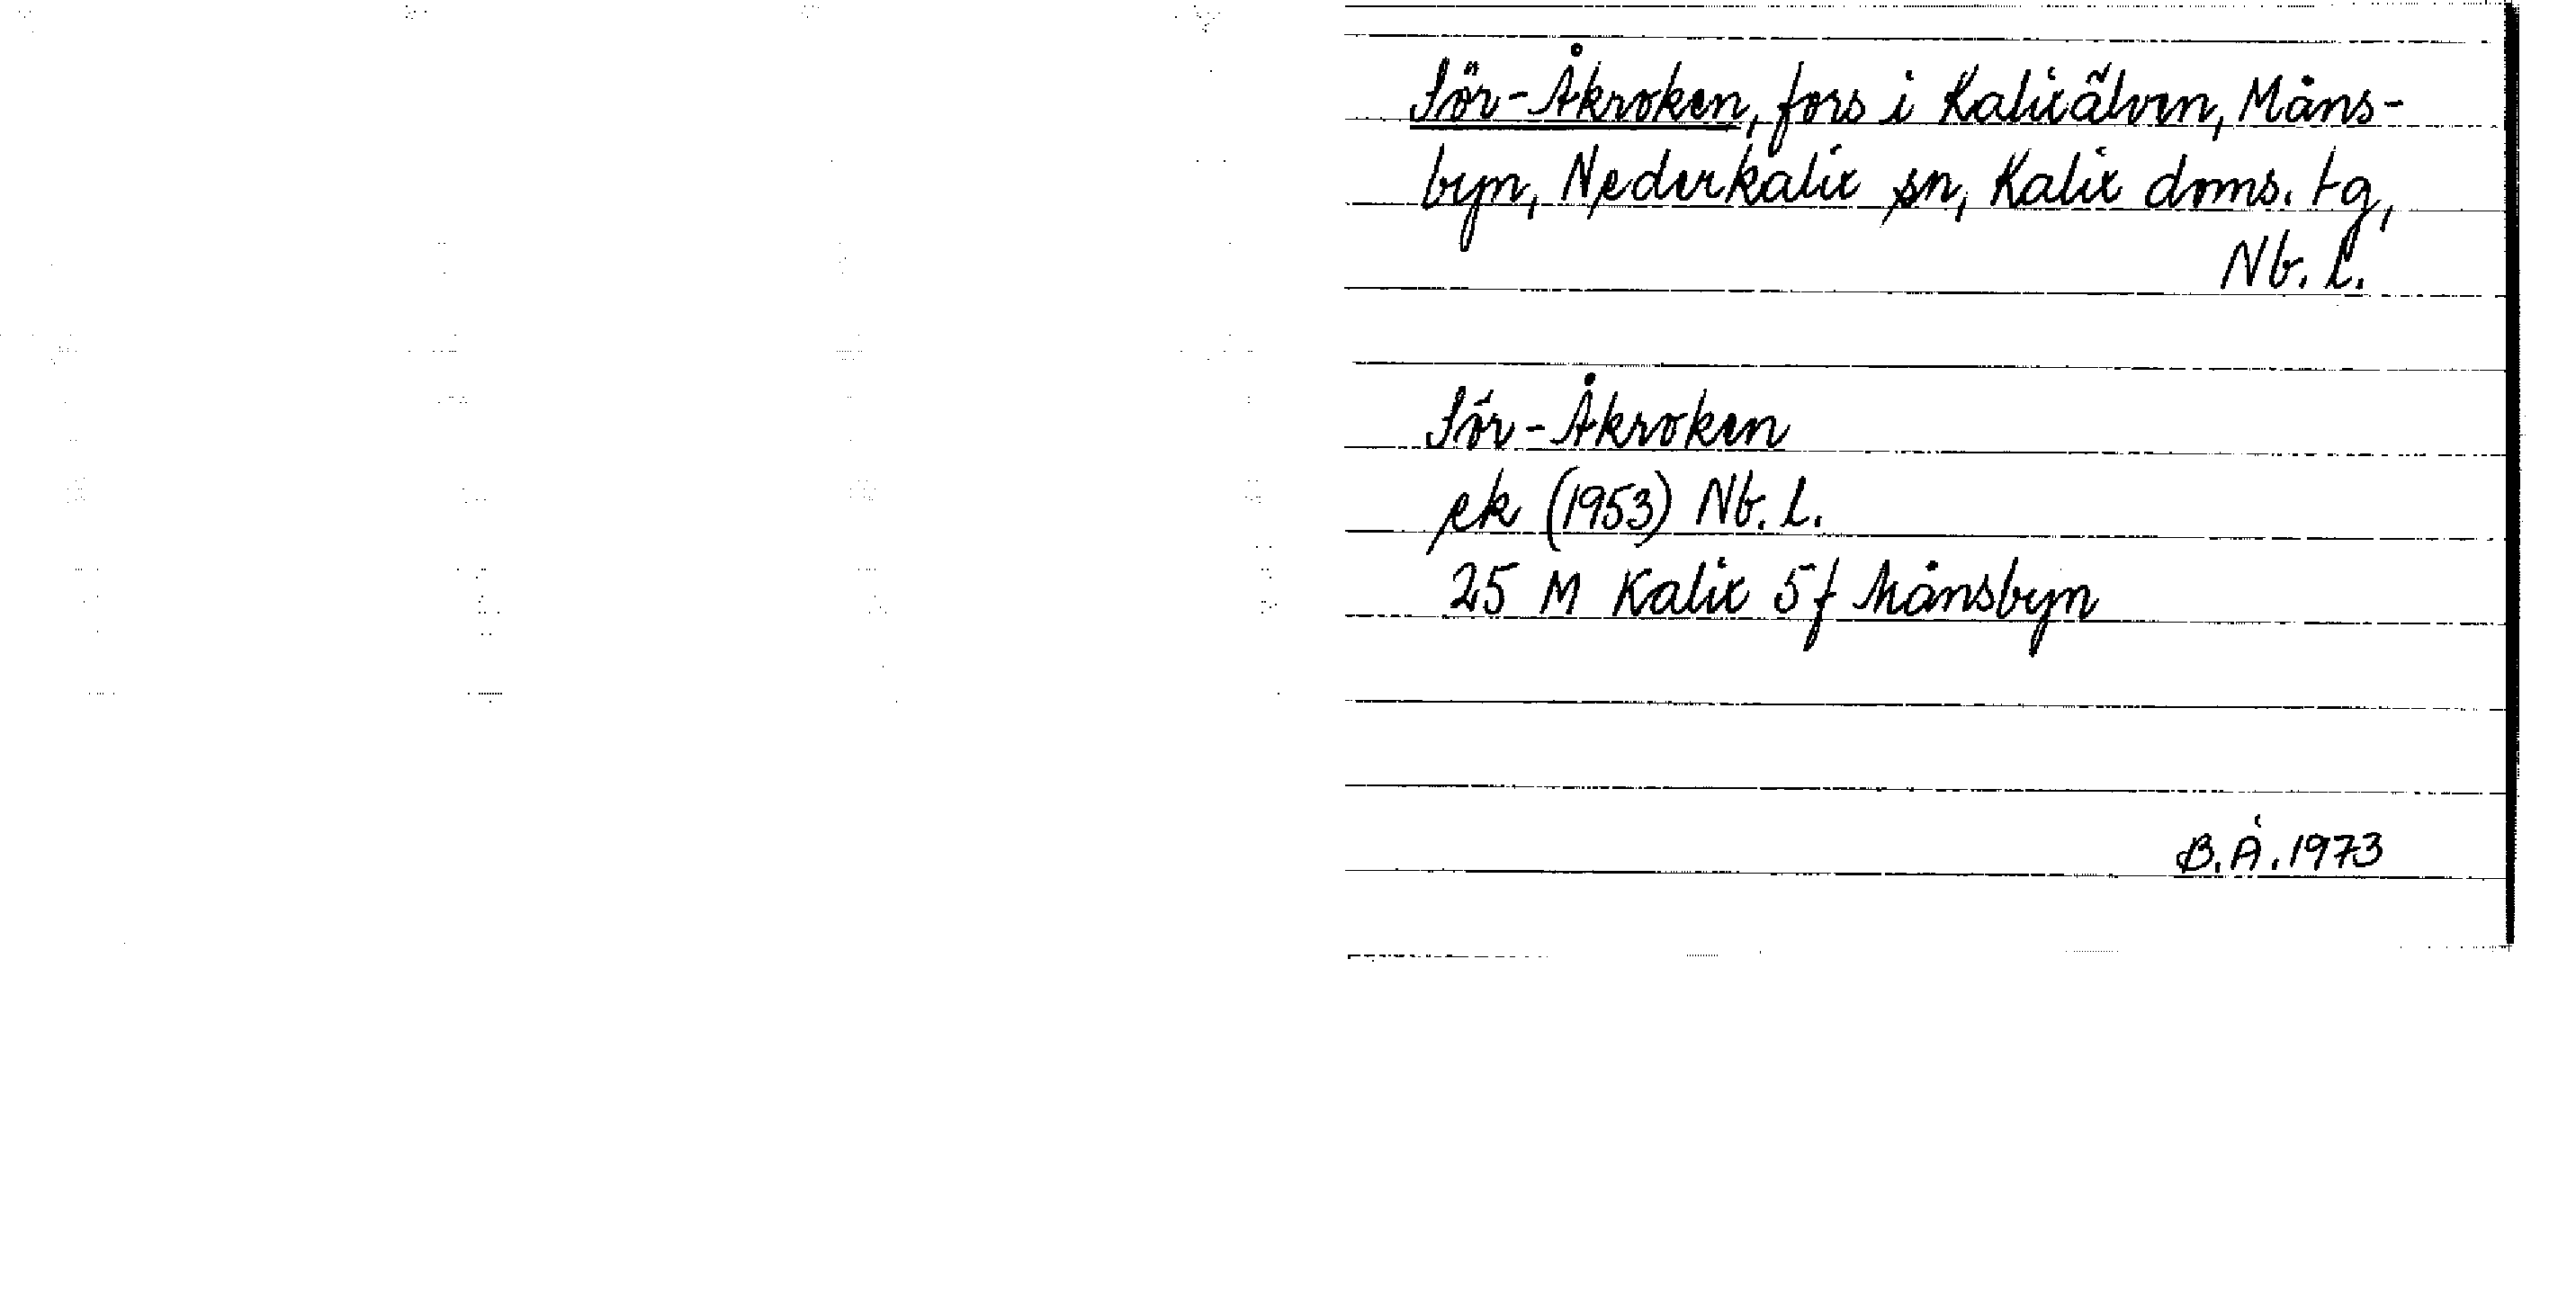 Sör-Åkroken, fors i Kalixälven, Måns-
byn, Nederkalix sn, Kalix doms. tg,
Nb. l.
Sör-Åkroken
ek (1953) Nb. l.
25 M Kalix 5f Månsbyn
B.Å. 1973